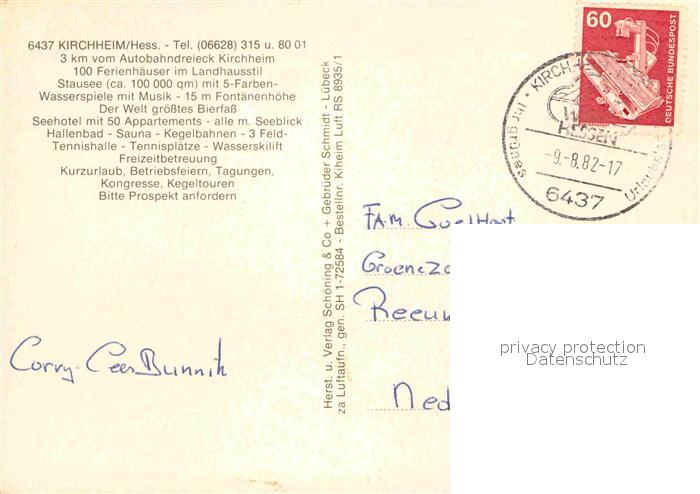 6437 KIRCHHEIM/Hess. - Tel. (06628) 315 u. 80 01
3 km vom Autobahndreieck Kirchheim
100 Ferienhäuser im Landhausstil
Stausee (ca. 100 000 qm) mit 5-Farben-
Wasserspiele mit Musik - 15 m Fontänenhöhe
Der Welt größtes Bierfaß
Seehotel mit 50 Appartements - alle m. Seeblick
Hallenbad - Sauna - Kegelbahnen - 3 Feld-
Tennishalle - Tennisplätze - Wasserskilift
Freizeitbetreuung
Kurzurlaub, Betriebsfeiern, Tagungen,
Kongresse, Kegeltouren
Bitte Prospekt anfordern
Corry-Cees Bunnik
Herst. u. Verlag Schöning & Co + Gebrüder Schmidt - Lübeck
za Luftaufn., gen. SH 1-72584 - Bestellnr. Kiheim Luft RS 8935/1
60
DEUTSCHE BUNDESPOST
KIRCH
HESSEN
-9.-8.82-17
6437
Ihr grünes
Urlaubs
FAM
Groenezo
Reeu
Ned
privacy protection
Datenschutz